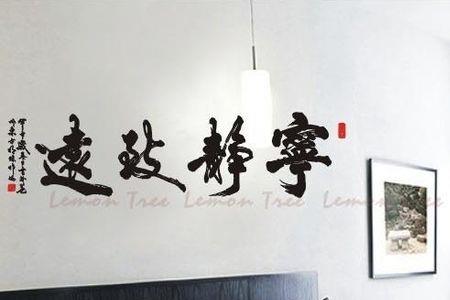 寧靜致遠
Lemon Tree Lemon Tree Lemon Tree